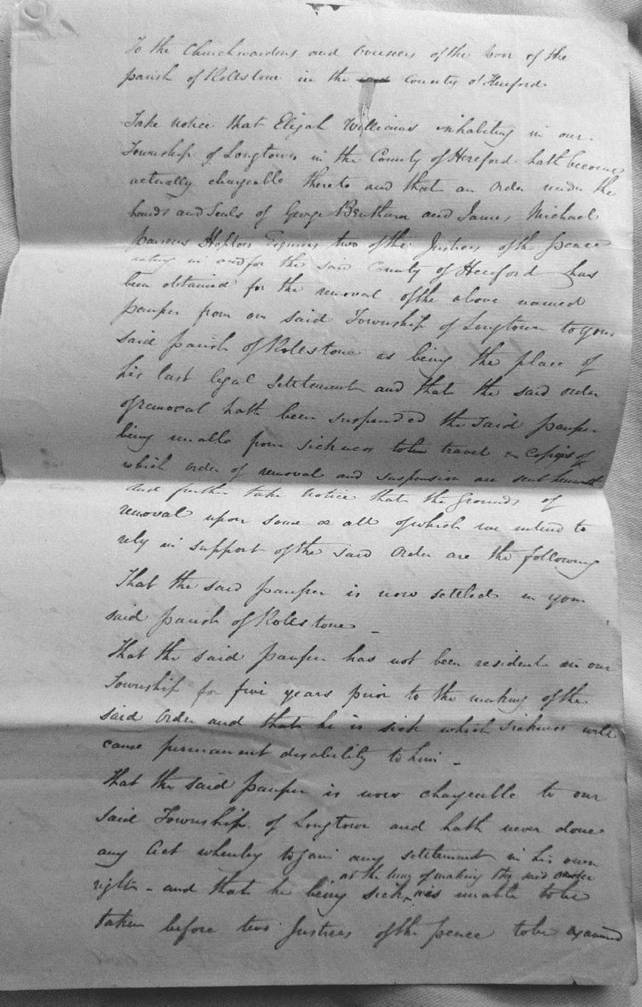 To the Churchwardens and Overseers of the Poor of the
parish of Rolestone in the County of Hereford.
Take notice that Elijah Williams inhabiting in our
Township of Longtown in the County of Hereford hath become
actually chargeable thereto and that an order under the
hands and Seals of George Bentham and James Michael
Parsons Hopton Esquires two of the Justices of the peace
acting in and for the said County of Hereford has
been obtained for the removal of the above named
pauper from our said Township of Longtown to your
said parish of Rolestone as being the place of
his last legal settlement and that the said order
of removal hath been suspended the said pauper
being unable from sickness to travel Copies of
which order of removal and suspension are sent herewith
and further take notice that the grounds of
removal upon some or all of which we intend to
rely in support of the said Order are the following
That the said pauper is now settled in your
said parish of Rolestone -
That the said pauper has not been resident in our
Township for five years prior to the making of the
said Order and that he is sick which sickness will
cause permanent disability to him -
That the said pauper is now chargeable to our
said Township of Longtown and hath never done
any act whereby to gain any settlement in his own
right - and that he being sick, at the time of making the said order was unable to be
taken before two Justices of the peace to be examined